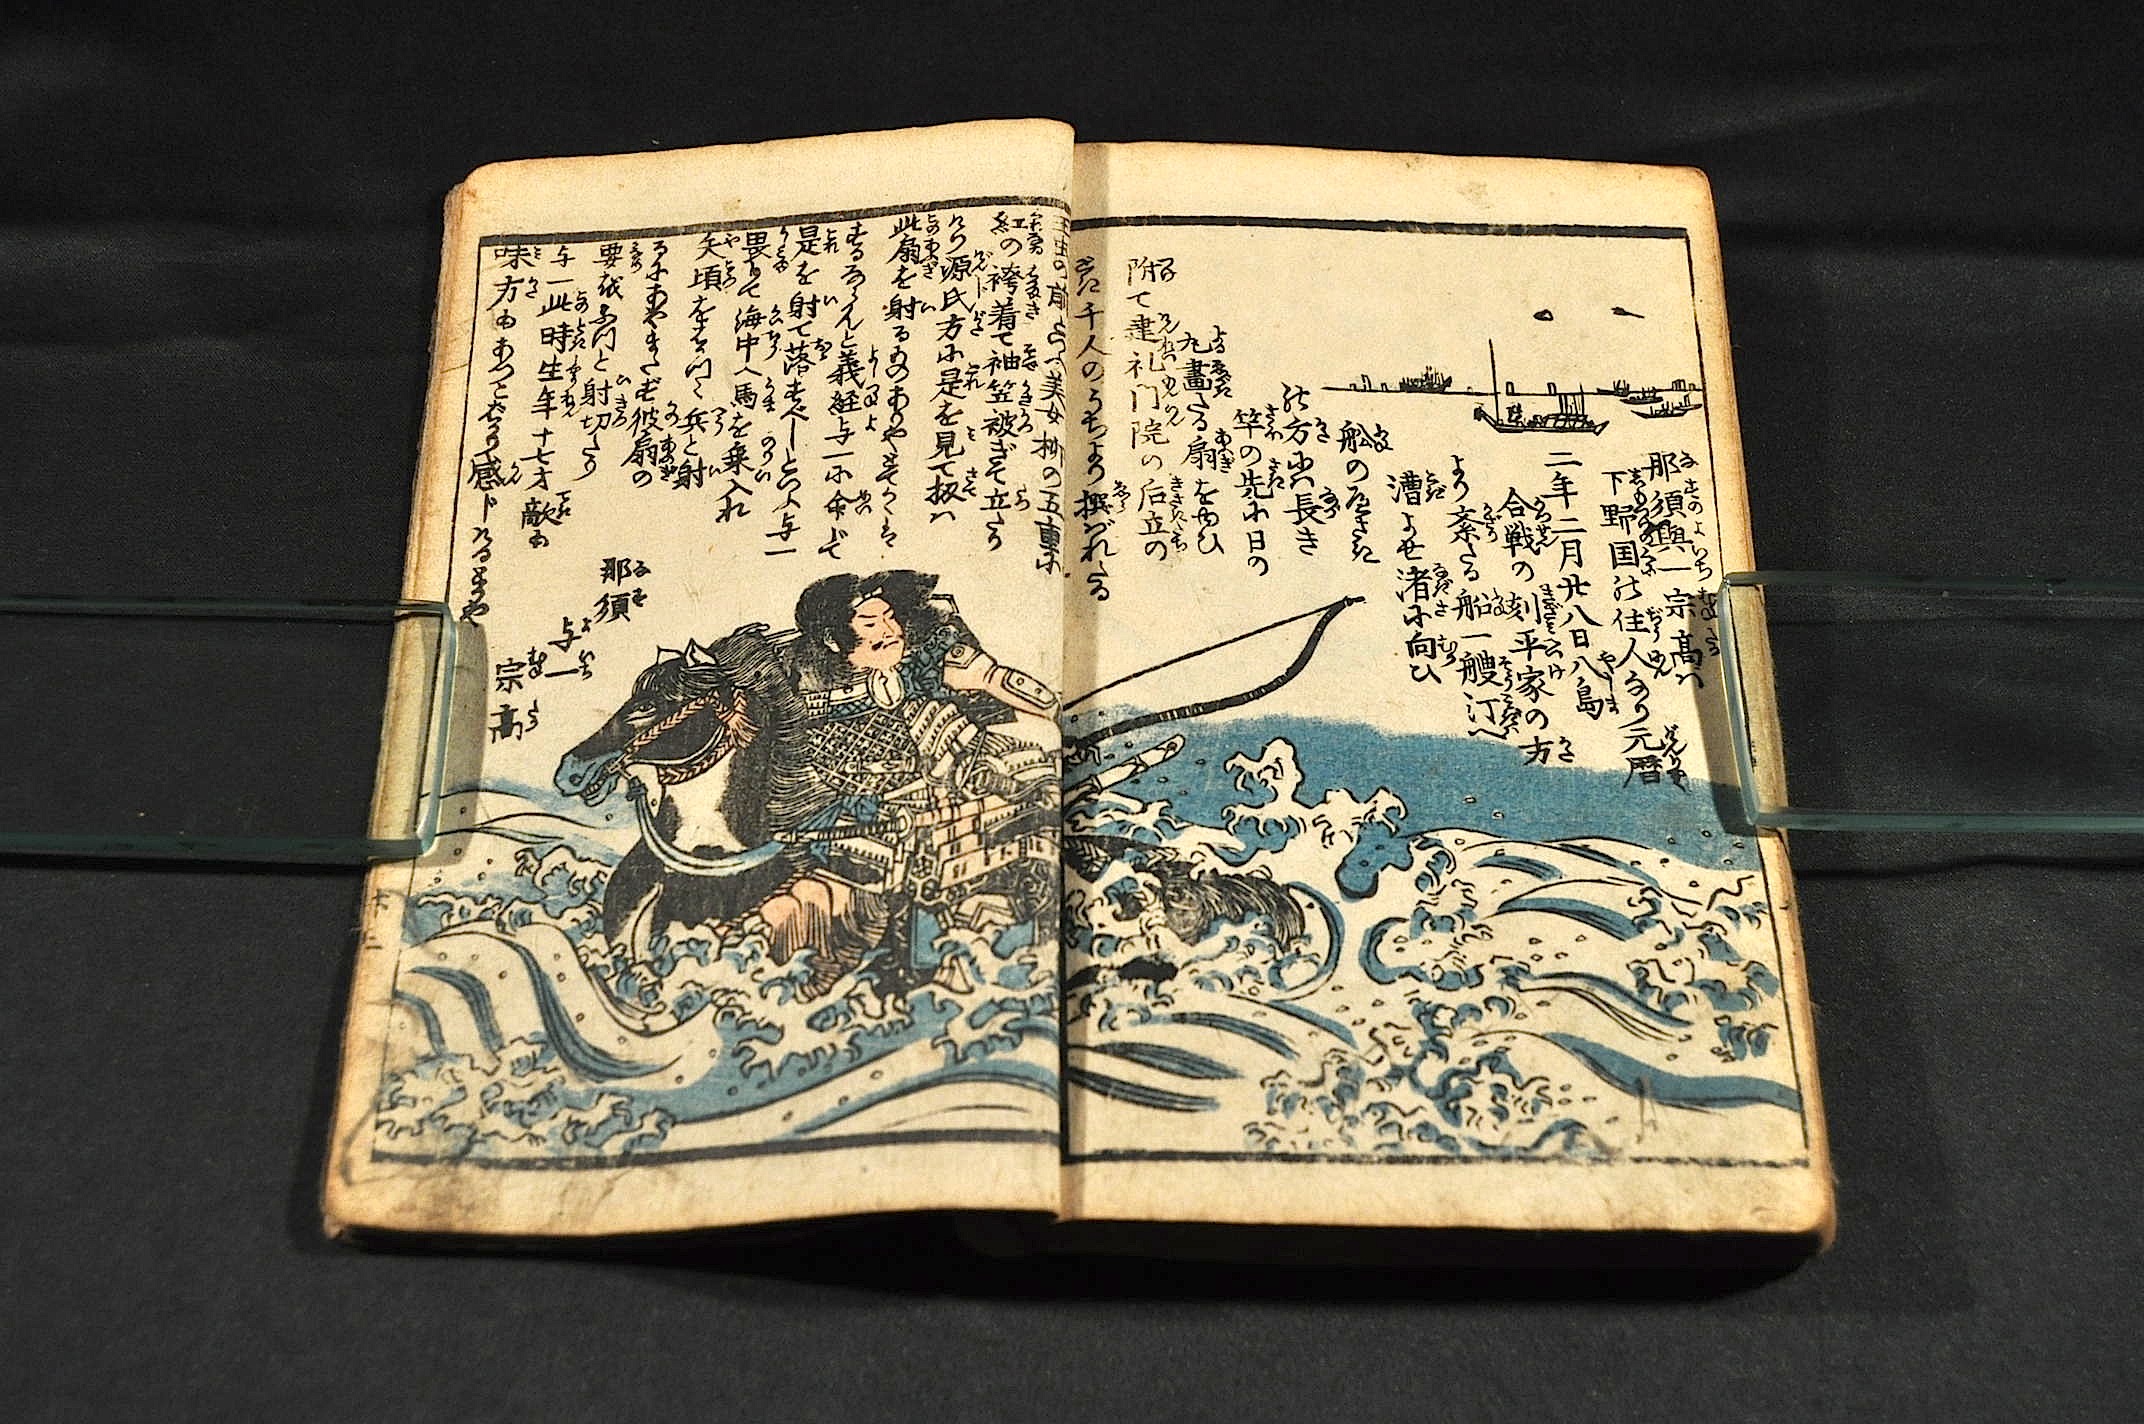 那須與一宗高ハ
下野国の住人なり元暦
二年二月廿八日八島
合戦の刻平家の方
より柰たる船一艘汀へ
漕よせ渚に向ひ
船のへさきに
の方に長き
竿の先に日の
丸畫たる扇をゆひ
附て建礼門院の后立の
千人のうちより撰ばれたる
玉虫の前といふ美女柳の五重に
紅の袴着て袖笠被ぎて立たり
ける源氏方に是を見て扨ハ
此扇を射るものありやなしやと
するならんと義経与一に命じて
是を射て落すべしといふ与一
畏りて海中へ馬を乗入れ
矢頃をはかつて兵と射
るにあやまたず彼扇の
要をふつと射切たり
与一此時生年十七才敵も
味方もあつと感じけるとや
那須
与一
宗高